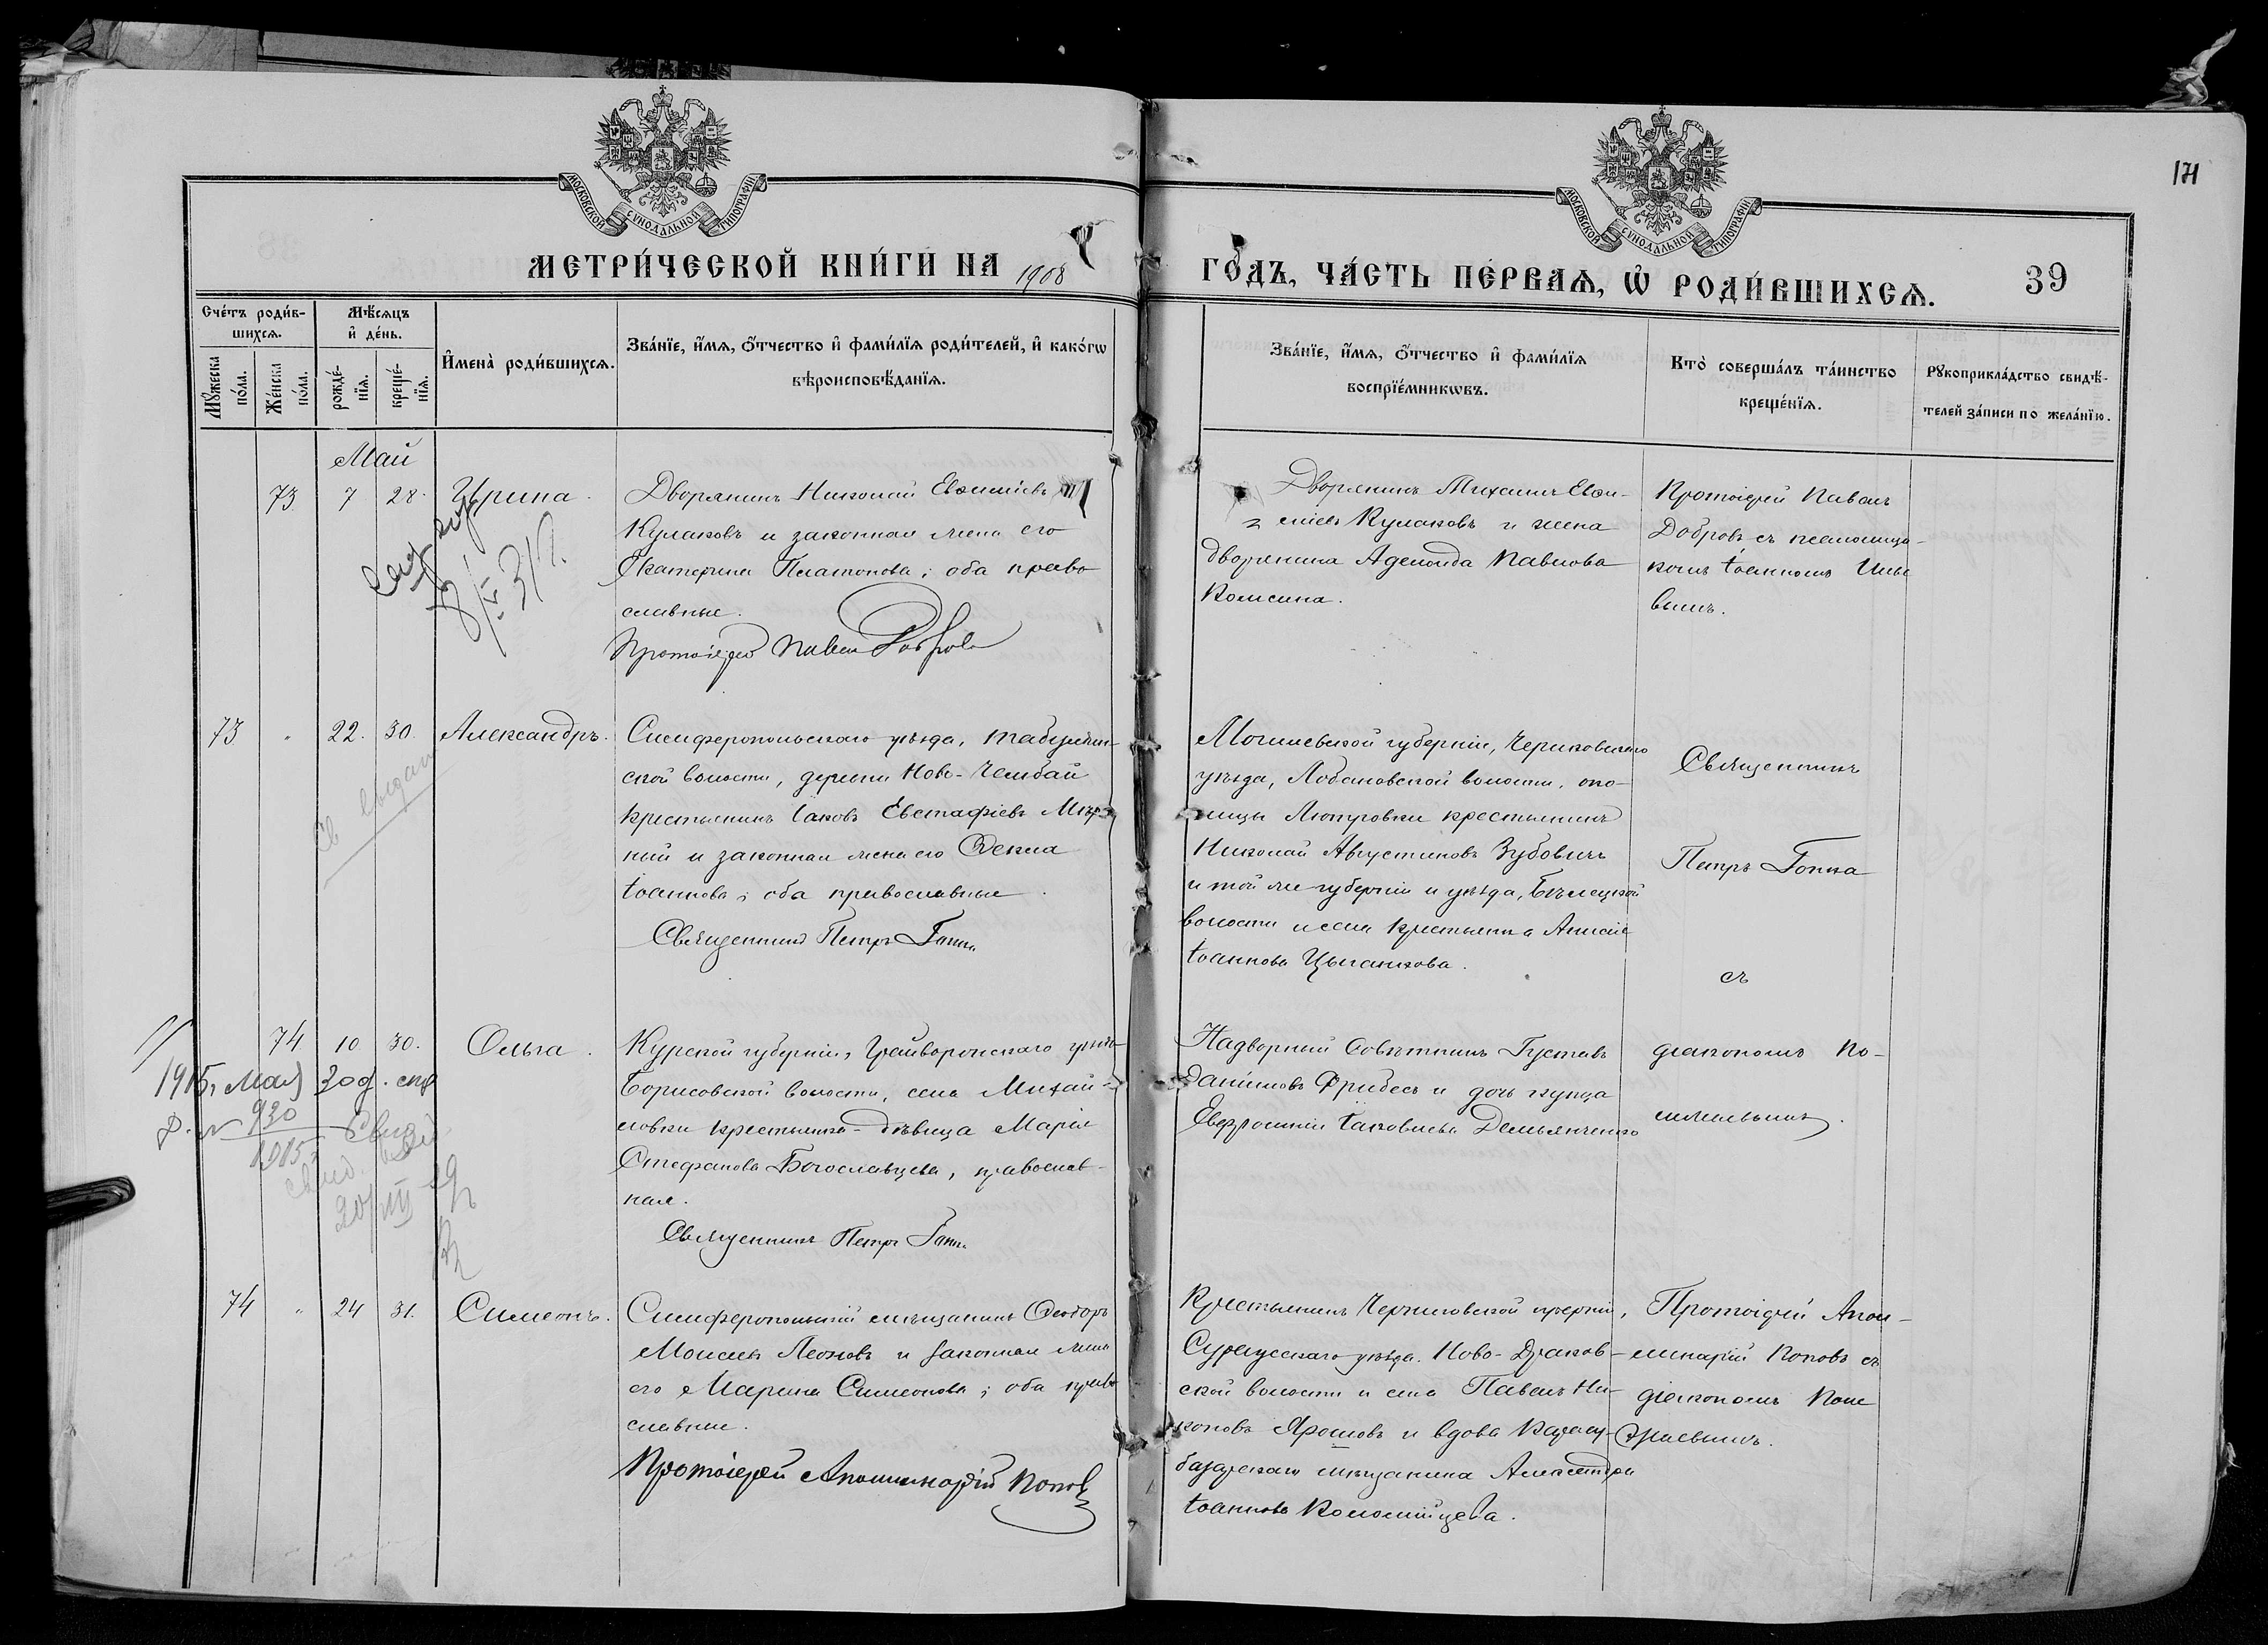 МОСКОВСКОЙ СѴНОДАЛЬНОЙ ТИПОГРАФІИ
МОСКОВСКОЙ СѴНОДАЛЬНОЙ ТИПОГРАФІИ
171
МЕТРИ́ЧЕСКОЙ КНИ́ГИ НА 1908
ГО́ДЪ, ЧА́СТЬ ПЕ́РВАѦ, Ѡ҆ РОДИ́ВШИХСѦ.
39
Сче́тъ роди́в-
шихсѧ.
Мꙋ́жеска по́ла.
Же́нска по́ла.
Мѣ́сѧцъ
и҆ де́нь.
рожде́-
нїѧ.
креще́-
нїѧ.
И҆мена̀ роди́вшихсѧ.
Зва́нїе, и҆́мѧ, ѻ҆́тчество и҆ фами́лїѧ роди́телей, и҆ како́гѡ
вѣроисповѣ́данїѧ.
Зва́нїе, и҆́мѧ, ѻ҆́тчество и҆ фами́лїѧ
воспрїе́мникѡвъ.
Кто̀ соверша́лъ та́инство
креще́нїѧ.
Рꙋкоприкла́дство свидѣ́-
телей за́писи по жела́нїю.
Май
73 7 28. Ирина.
Дворянинъ Николай Евѳиміевъ
Кулаковъ и законная жена его
Екатерина Платонова; оба право
славные.
Протоіерей Павелъ Добровъ
Дворянинъ Михаилъ Евѳи-
міевъ Кулаковъ и жена
дворянина Аделаида Павлова
Протоіерей Павелъ
Добровъ съ псаломщи-
комъ Іоанномъ
73 " 22. 30. Александръ.
Св выдан
Симферопольскаго уѣзда, Табулдин-
ской волости, деревни Ново-Чембай
крестьянинъ Іаковъ Евстафіевъ
ный и законная жена его Ѳекла
Іоаннова; оба православные.
Священникъ Петръ Гопка
Могилевской губерніи, Чериковскаго
уѣзда, Лобановской волости, око-
лицы крестьянинъ
Николай Августиновъ Зубовичъ
и той же губерніи и уѣзда, Бѣлецкой
волости и села крестьянка Анисія
Іоаннова Цыганкова.
Священникъ
Петръ Гопка
съ
74 10 30. Ольга.
1915 г. мая 30 д.
№ 930
1915
Курской губерніи, Грайворонскаго уѣзда
Борисовской волости, села Михай-
ловки крестьянка-дѣвица Марія
Стефанова Богославцева, православ-
ная.
Священникъ Петръ Гопка
Надворный Совѣтникъ Густавъ
Даниловъ Фрибесъ и дочь купца
Евфросинія Іаковлева Демьянченко
діакономъ
74 " 24 31. Симеонъ.
Симферопольскій мѣщанинъ Ѳеодоръ
Моисеевъ Леоновъ и законная жена
его Марина Симеонова; оба право
славные.
Протоіерей Аполлинарій Поповъ
Крестьянинъ Черниговской губерніи,
Суражскаго уѣзда, Ново-Драков-
ской волости и села Павелъ Ни-
коновъ Ярошовъ и вдова Карасу-
базарскаго мѣщанина Александра
Іоаннова Коломійцева.
Протоіерей Апол-
линарій Поповъ съ
діакономъ